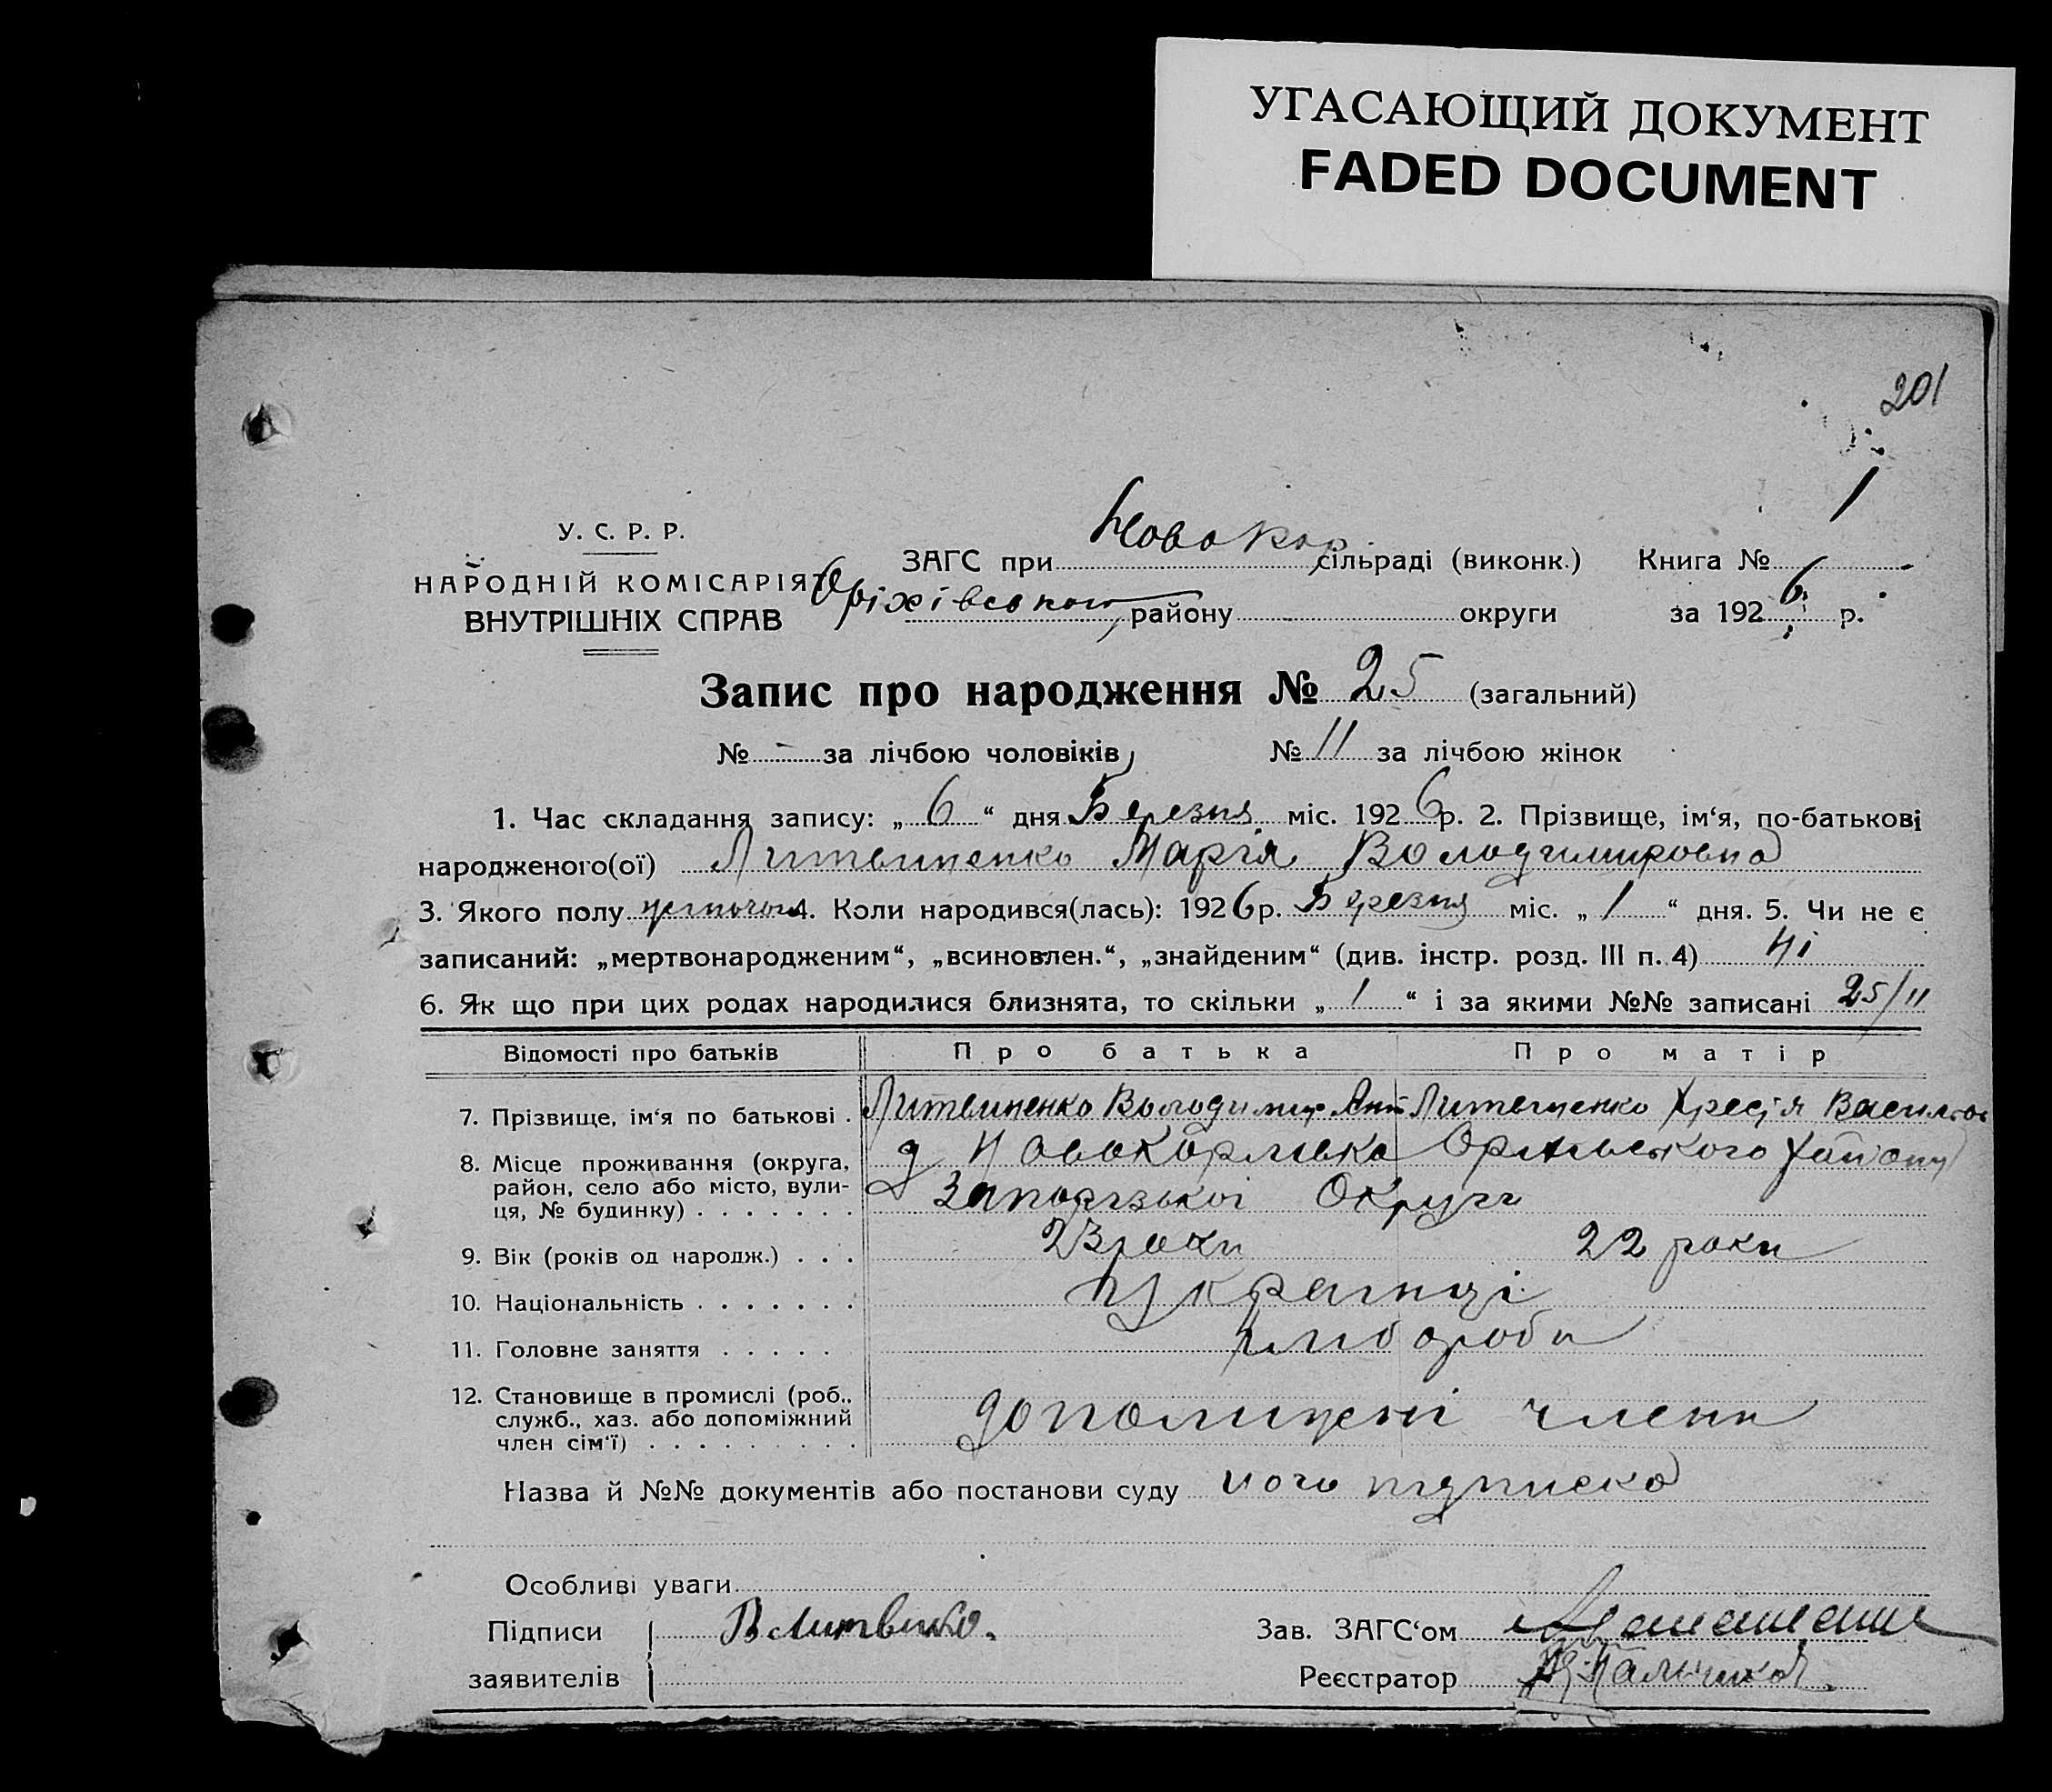 УГАСАЮЩИЙ ДОКУМЕНТ
FADED DOCUMENT
201
У. С. Р. Р.
НАРОДНІЙ КОМІСАРІЯТ
ВНУТРІШНІХ СПРАВ
ЗАГС при Новокар сільраді (виконк.) Книга № 1
Оріхівського району округи за 1926 р.
Запис про народження № 25 (загальний)
№ - за лічбою чоловіків, № 11 за лічбою жінок
1. Час складання запису: „ 6 “ дня Березня міс. 1926р. 2. Прізвище, ім‘я, по-батькові
народженого(ої) Литвиненко Марія Володимировна
3. Якого полу жіночого 4. Коли народився(лась): 1926р. Березня міс. „ 1 “ дня. 5. Чи не є
записаний: „мертвонародженим“, „всиновлен.“, „знайденим“ (див. інстр. розд. III п. 4) ні
6. Як що при цих родах народилися близнята, то скільки „ 1 “ і за якими №№ записані 25/11
Відомості про батьків Про батька Про матір
7. Прізвище, ім‘я по батькові . Литвиненко Володимир Ант Литвиненко Хресія Васильов
8. Місце проживання (округа, район, село або місто, вули-ця, № будинку) . . . . . . . Новокарлівка Району
Запорізької Округи
9. Вік (років од народж.) . . . 23 роки 22 роки
10. Національність . . . . . . . українці
11. Головне заняття . . . . . хлібороби
12. Становище в промислі (роб., служб., хаз. або допоміжний член сім‘ї) . . . . . . . . . допоміжні члени
Назва й №№ документів або постанови суду його підписка
Особливі уваги
Підписи В Литвинко. Зав. ЗАГС‘ом
заявителів Реєстратор